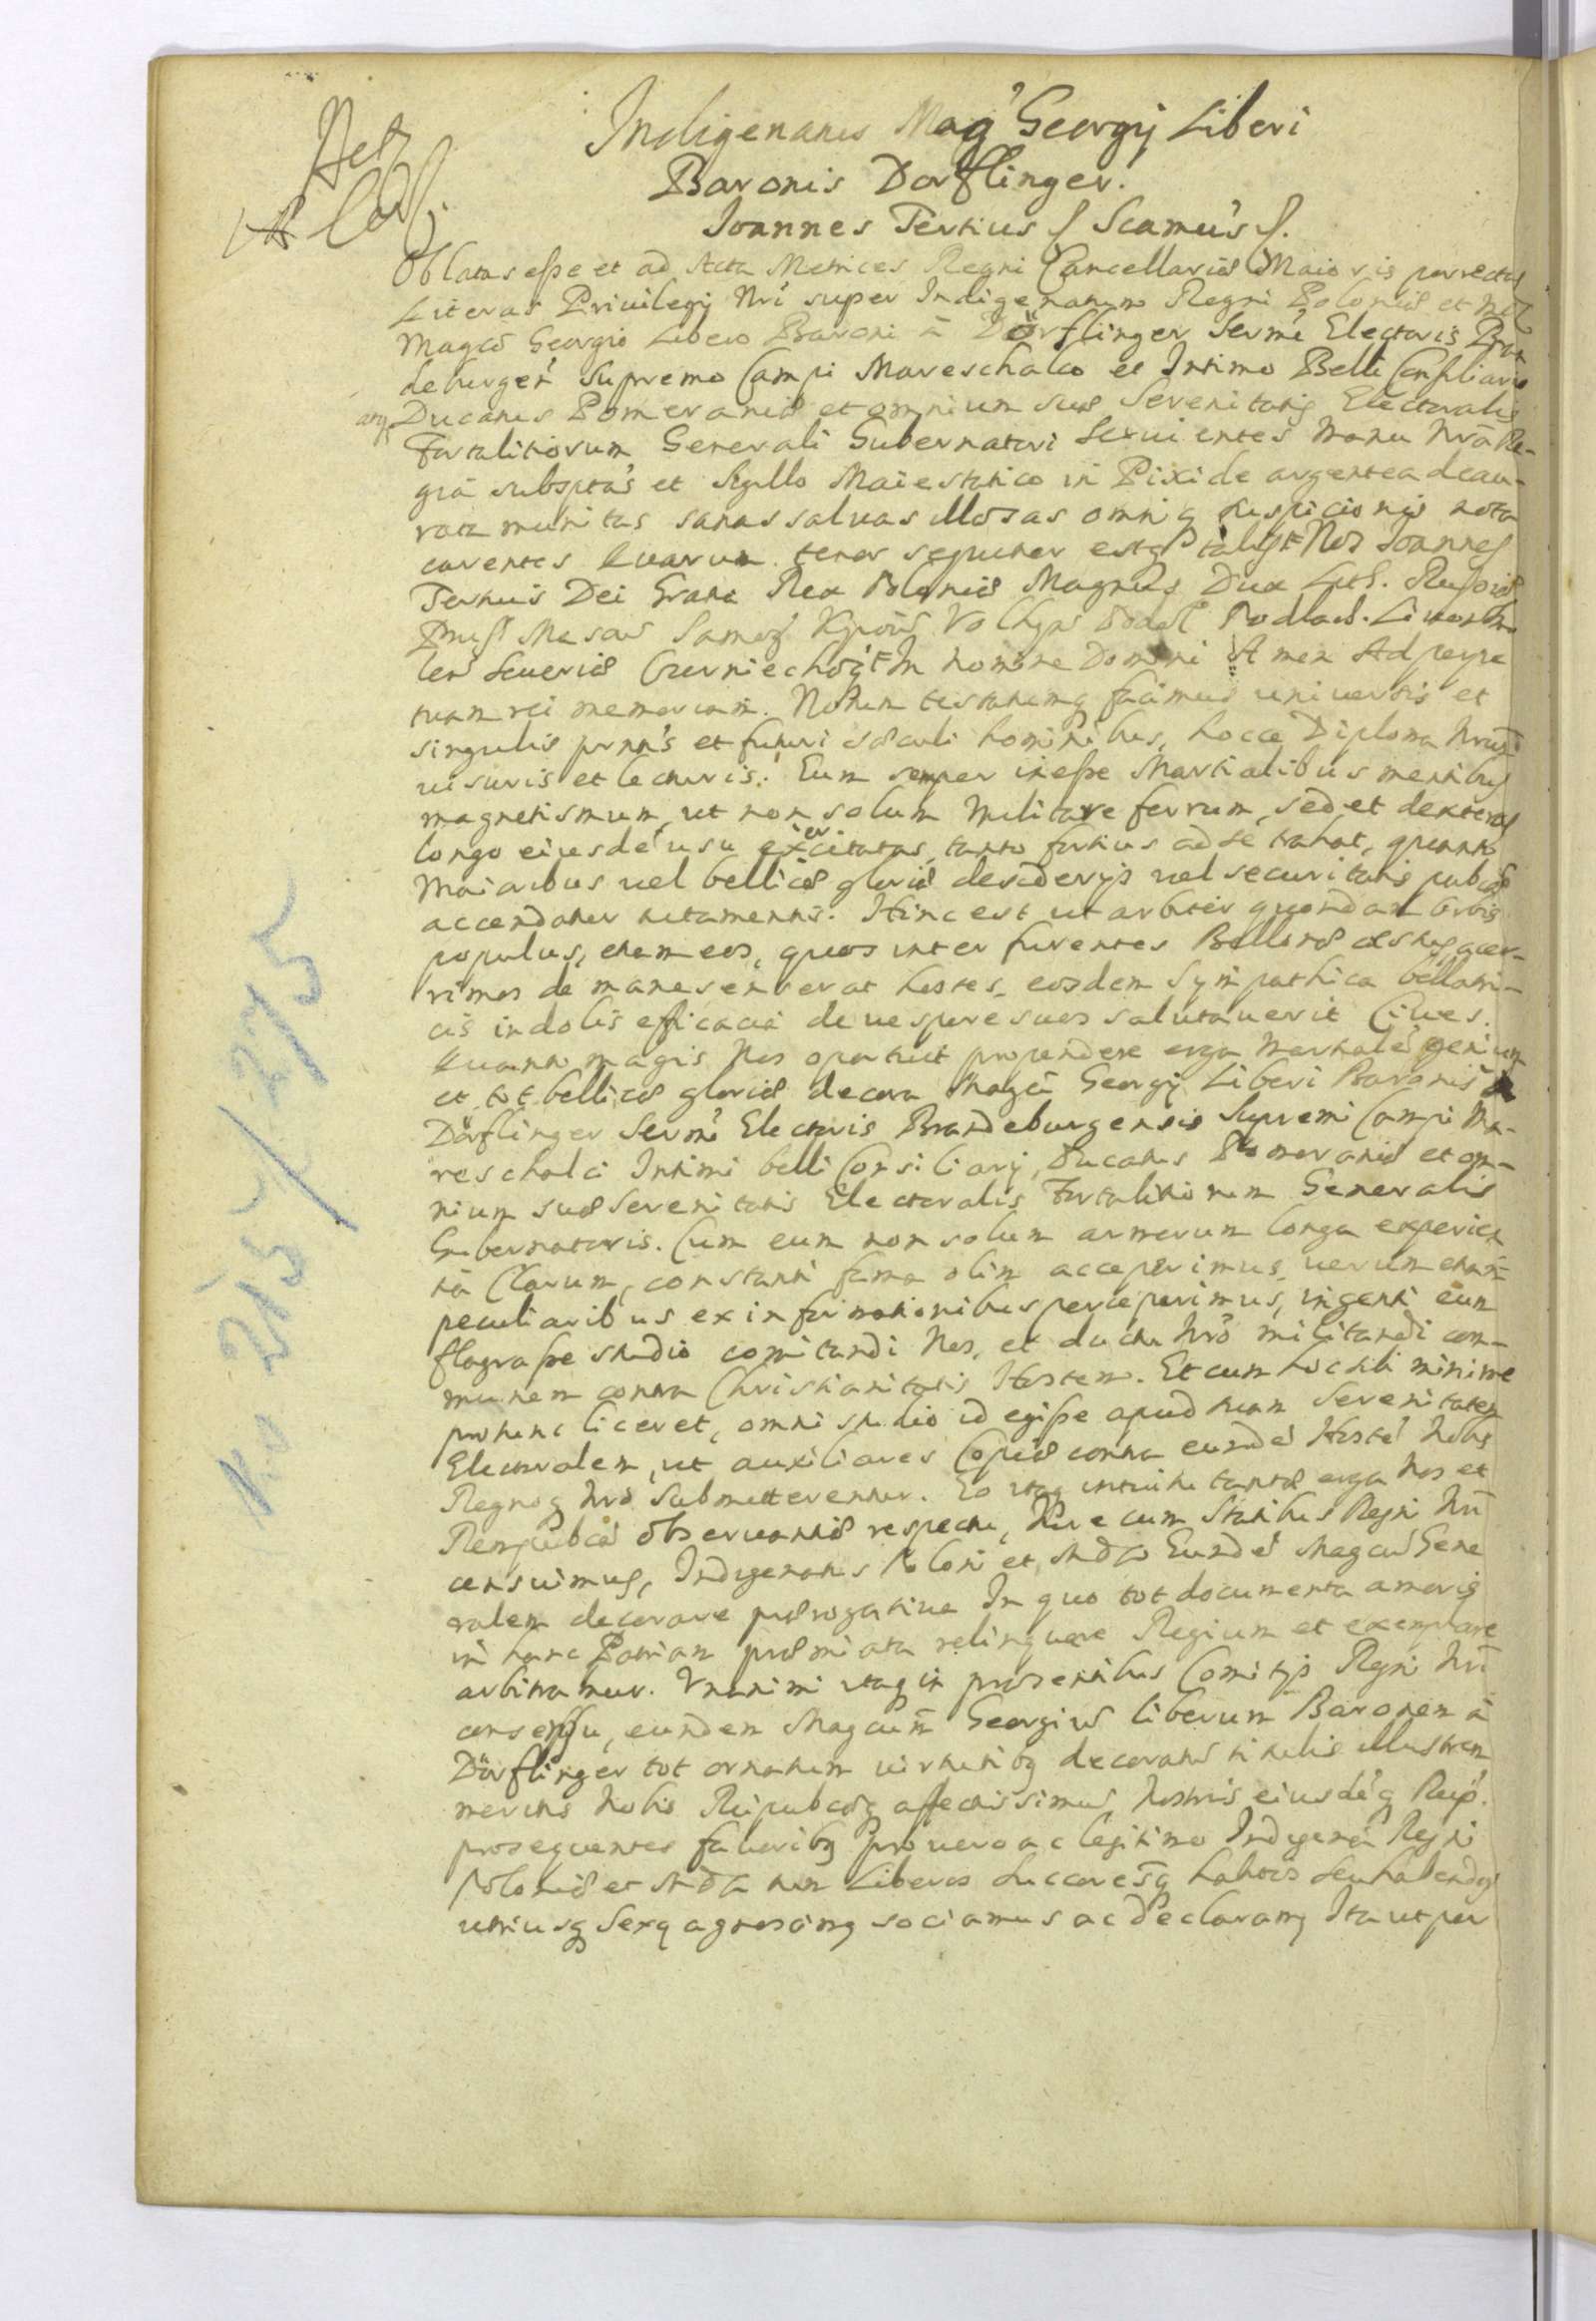 Indigenatus Mag' Georgij Liberi
Baronis Dorflinger.
Joannes Tertius Scamus
Oblatas esse et ad Acta Metrices Regni Cancellariæ Maioris porrectas
Literas Privilegij Nri super Indigenatum Regni Poloniæ et
Magco Georgio Libero Baroni à Dörflinger Sermi Electoris Bran
deburgen Supremo Campi Mareschalco et Intimo Belli Consiliario
atq Ducatus Pomeraniæ et omnium suæ Serenitatis Electoralis
Fortalitiorum Generali Gubernatori seruientes manu nrã Re-
giã subscptas et Sigillo Maiestatico in Pixide argentea deau-
rata munitas sanas saluas illæsas omniq suspicionis nota
carentes Quarum tenor sequitur estq talis Nos Joannes
Tertius Dei Gratia Rex Poloniæ Magnus Dux Lith. Russiæ
Pruss Masov Samog Kijoviæ Volhyn Podol Podlach. Livon Smo
len Seueriæ Czerniechoviæq In nomine Domini Amen Ad perpe
tuam rei memoriam. Notum testatumq facimus uniuersis et
singulis pnntis et futuri sæculi hominibus, hocce Diploma nrum
uisuris et lecturis. Eum semper inesse Martialibus mentibus
magnetismum, ut non solum militare ferrum, sed et dexteras
longo eiusdẽ usu exercitatas, tanto fortius ad se trahat, quanto
maioribus uel bellicæ gloriæ desiderijs uel securitatis pubcæ
accendatur Hinc est ut arbiter quondam orbis
populus, etiam eos, quos inter furentes Bellonæ æstus, acer-
rimos de mane senserat hostes, eosdem sympathica bellatri-
cis indolis efficacia de uespere suos salutauerit Ciues.
Quanto magis Nos oportuit propendere erga Martialẽ genium
et tot bellicæ gloriæ decora Magci Georgij Liberi Baronis à
Dörflinger Sermi Electoris Brandeburgensis Supremi Campi Ma-
reschalci Intimi belli Consiliarij, Ducatus Pomeraniæ et om-
nium suæ Serenitatis Electoralis Fortalitiorum Generalis
Gubernatoris. Cum eum non solum armorum longa experien
tiã Clarum, constanti fama olim acceperimus, uerum etiam
peculiaribus ex informationibus perceperimus, ingenti eum
flagrasse studio comitandi Nos, et ductu nrõ militandi com-
munem contra Christianitatis Hostem. Et cum hoc sibi minime
pro tunc liceret, omni studio id egisse apud suam Serenitatem
Electoralem, ut auxiliares Copiæ contra eundẽ Hostẽ Nobis
Regnoq nro submitterentur. Eo itaq intuitu tantæ erga Nos et
Rempubcã obseruantiæ respectu, cum Statibus Regni Nri
censuimus, Indigenatus Poloni et Eundẽ Magcum Gene
ralem decorare prærogatiua In quo tot documenta amoris
in hanc Patriam præmiata relinquere Regium et exemplare
arbitramur. Vnanimi itaq in præsentibus Comitijs Regni Nri
consensu, eundem Magcum Georgium liberum Baronem à
Dörflinger tot ornatum uirtutibq decoratum titulis illustrem
meritis Nobis Reipubcæq affectissimum, nostris eiusdẽq Reip.
prosequentes fauoribq pro uero ac legitimo Indigena Regni
Poloniæ et cum Liberis Successoribq habitis seu habendis
utriusq Sexq agnoscimq sociamus ac declaramq Ita ut per
No 215/275